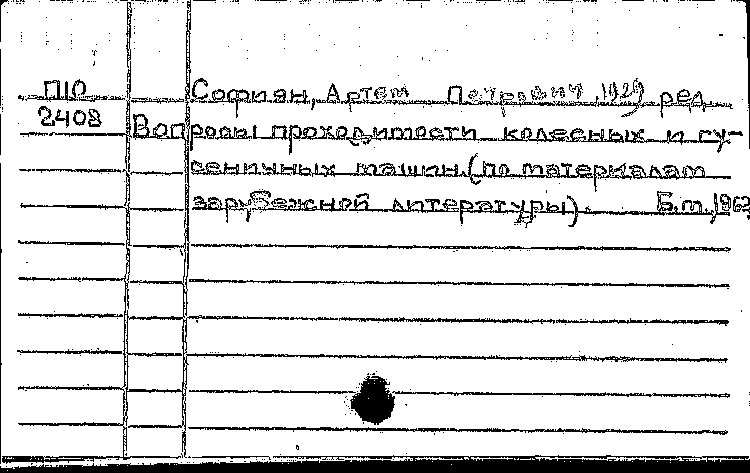 П10 Софиян, Артем Петрович, 1929, ред.
2408 Вопросы проходимости колесных и гу-
сеничных машин (по материалам
зарубежной литературы). Б.м., 1962